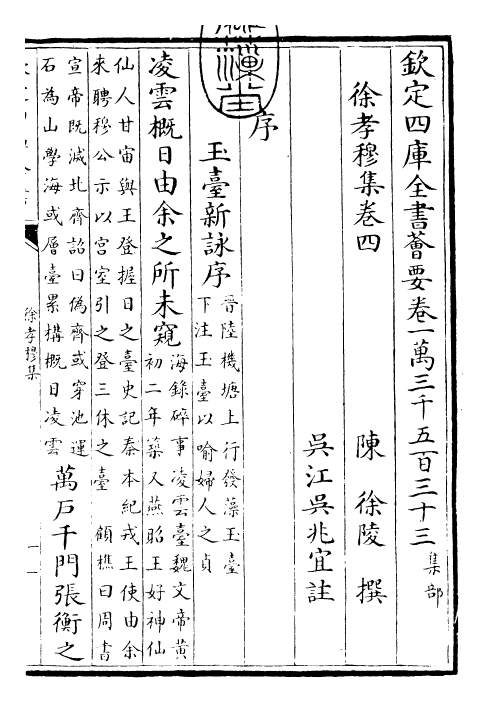 欽定四庫全書薈要卷一萬三千五百三十三 集部
徐孝穆集卷四 陳 徐陵 撰
吳江吳兆宜註
序
玉臺新詠序
晉陸機塘上行發藻玉臺
下注玉臺以喻婦人之貞
凌雲概日由余之所未窺
海錄碎事凌雲臺魏文帝黃
初二年築又燕昭王好神仙
仙人甘宙與王登握日之臺史記秦本紀戎王使由余
來聘穆公示以宮室引之登三休之臺 顧樵曰周書
宣帝既滅北齊詔曰偽齊或穿池運
石為山學海或層臺累構概日凌雲
萬戶千門張衡之
徐孝穆集
一